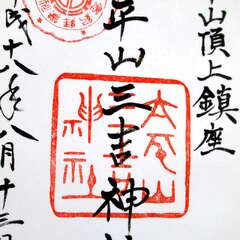 山頂上鎮座
平山三吉神社
太平山三吉神社
平成十八年八月十三